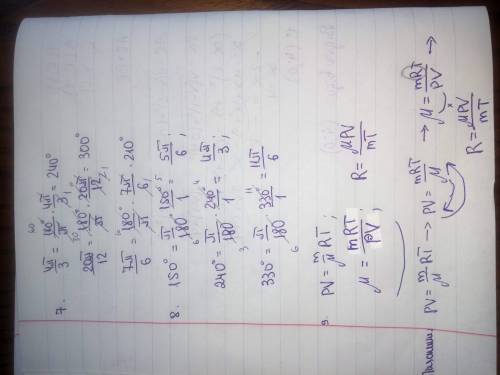 7. 4π/3 = 180°/π · 4π/3 = 240°
20π/12 = 180°/π · 20π/12 = 300°
7π/6 = 180°/π · 7π/6 210°
8. 150° = π/180 · 150°/1 = 5π/6;
240° = π/180 · 240°/1 = 4π/3;
330° = π/180 · 330°/1 = 11π/6
9. PV = m/μ RT; R = μPV/mT
μ = mRT/PV;
PV = m/μ RT → PV = mRT/μ → μ = mRT/PV →
R = μPV/mT